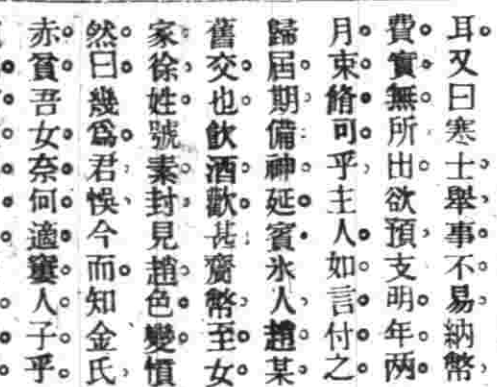 耳又曰寒士舉事不易納幣
費實無所出欲預支明年两
月束脩可乎主人如言付之
歸屆期備神延賓氷人趙某
舊交也飲酒歡甚齎幣至女
家徐姓號素封見趙色變憤
然曰幾爲君悞今而知金氏
赤貧吾女奈何適窶人子乎